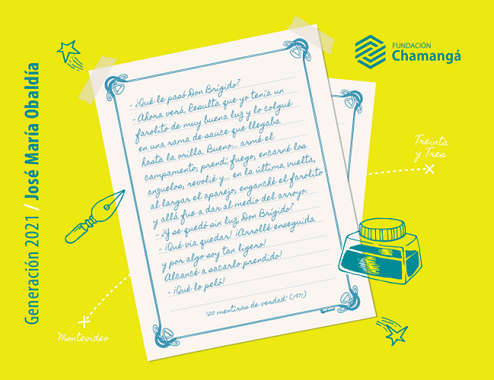 Generación 2021 / José María Obaldía
FUNDACIÓN
Chamangá
- ¿Qué le pasó Don Brígido?
- Ahora verá. Resulta que yo tenía un
farolito de muy buena luz y lo colgué
en una rama de sauce que llegaba
hasta la orilla. Bueno... armé el
campamento, prendí fuego, encarné los
anzuelos, revolié y... en la última vuelta,
al largar el aparejo, enganché el farolito
y allá fue a dar al medio del arroyo.
- ¿Y se quedó sin luz Don Brígido?
- ¡Qué via quedar! ¡Arrollé enseguida
y por algo soy tan ligero!
Alcancé a sacarlo prendido!
- ¡Qué lo peló!
"20 mentiras de verdad" (1971)
Treinta
y Tres
Montevideo